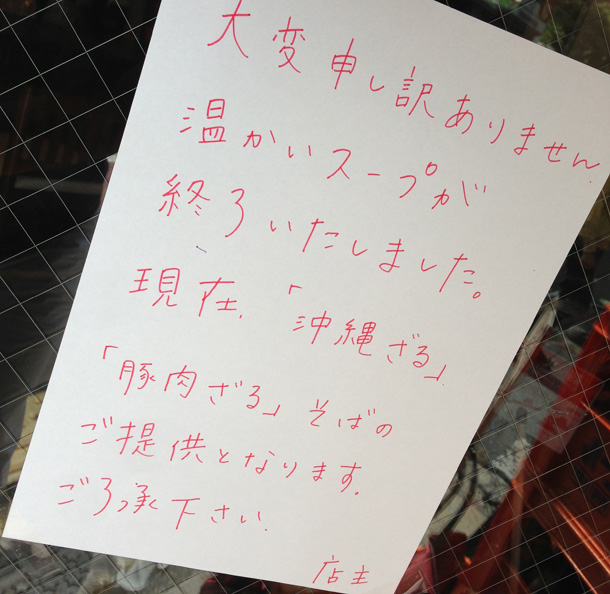 大変申し訳ありません
温かいスープが
終了いたしました。
現在、「沖縄ざる」
「豚肉ざる」そばの
ご提供となります。
ご了承下さい。
店主